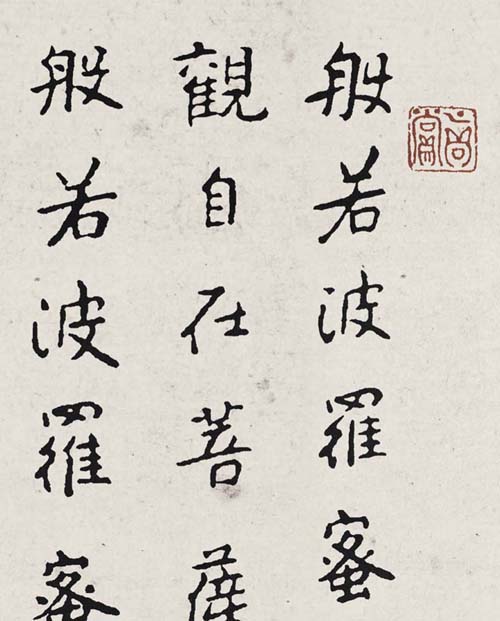 般若波羅蜜
觀自在菩薩
般若波羅蜜